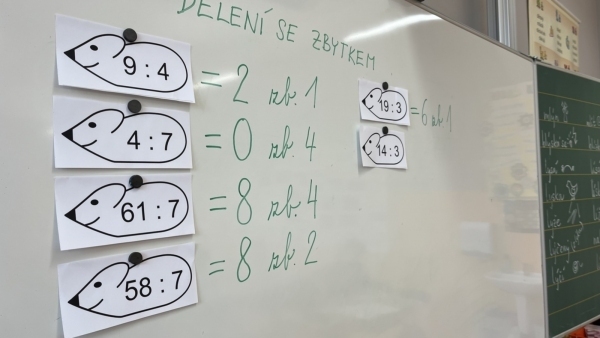 DĚLENÍ SE ZBYTKEM
9 : 4 = 2 zb. 1
4 : 7 = 0 zb. 4
61 : 7 = 8 zb. 4
58 : 7 = 8 zb. 2
19 : 3 = 6 zb 1
14 : 3